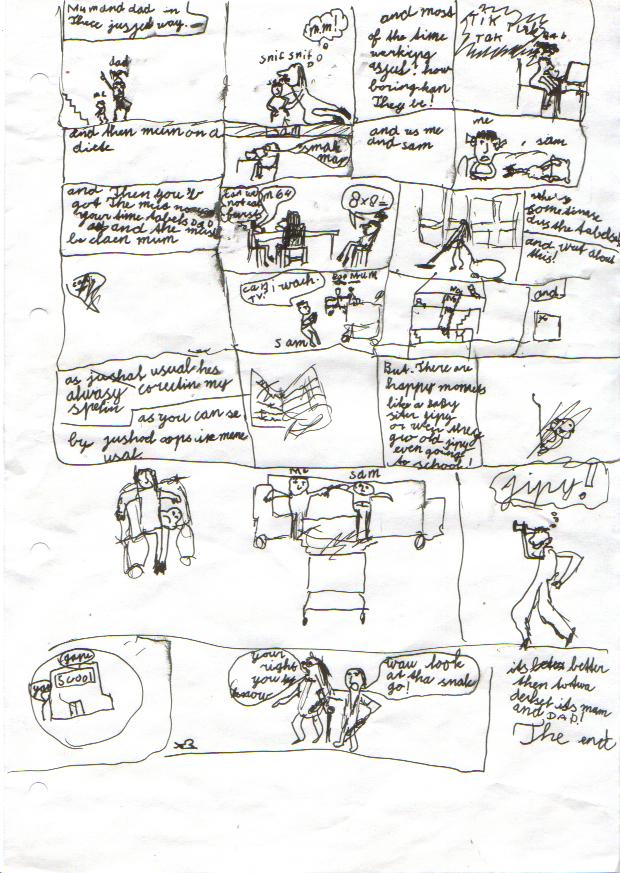 Mum and dad in
There jusjel way.
dad
me
m.m!
snif snif
sam
and most
of the time
working
asjel! how
boring kan
They be!
TIK TIK
TAK
DAD
and then mum on a
diete
sam
smak
map
and us me
and sam
me
, sam
and Then you'v
got the mis
your time tabels DAD
and the must
be claen mum
64
8x8=
sometimse
aus the tabels
and wat about
this!
can i wach
TV!
MUM
sam
and
as jushal usual hes
alwasy corectin my
spelin
as you can se
by jushod oops i mene
usal
But There are
happy monets
like a baby
siter jipy
or wen they
gro old jipy
even going
to school!
Me
sam
jipy!
Scool
your
right
you
know
waw look
at tha snak
go!
its betes better
then
its mam
and DAD!
The end